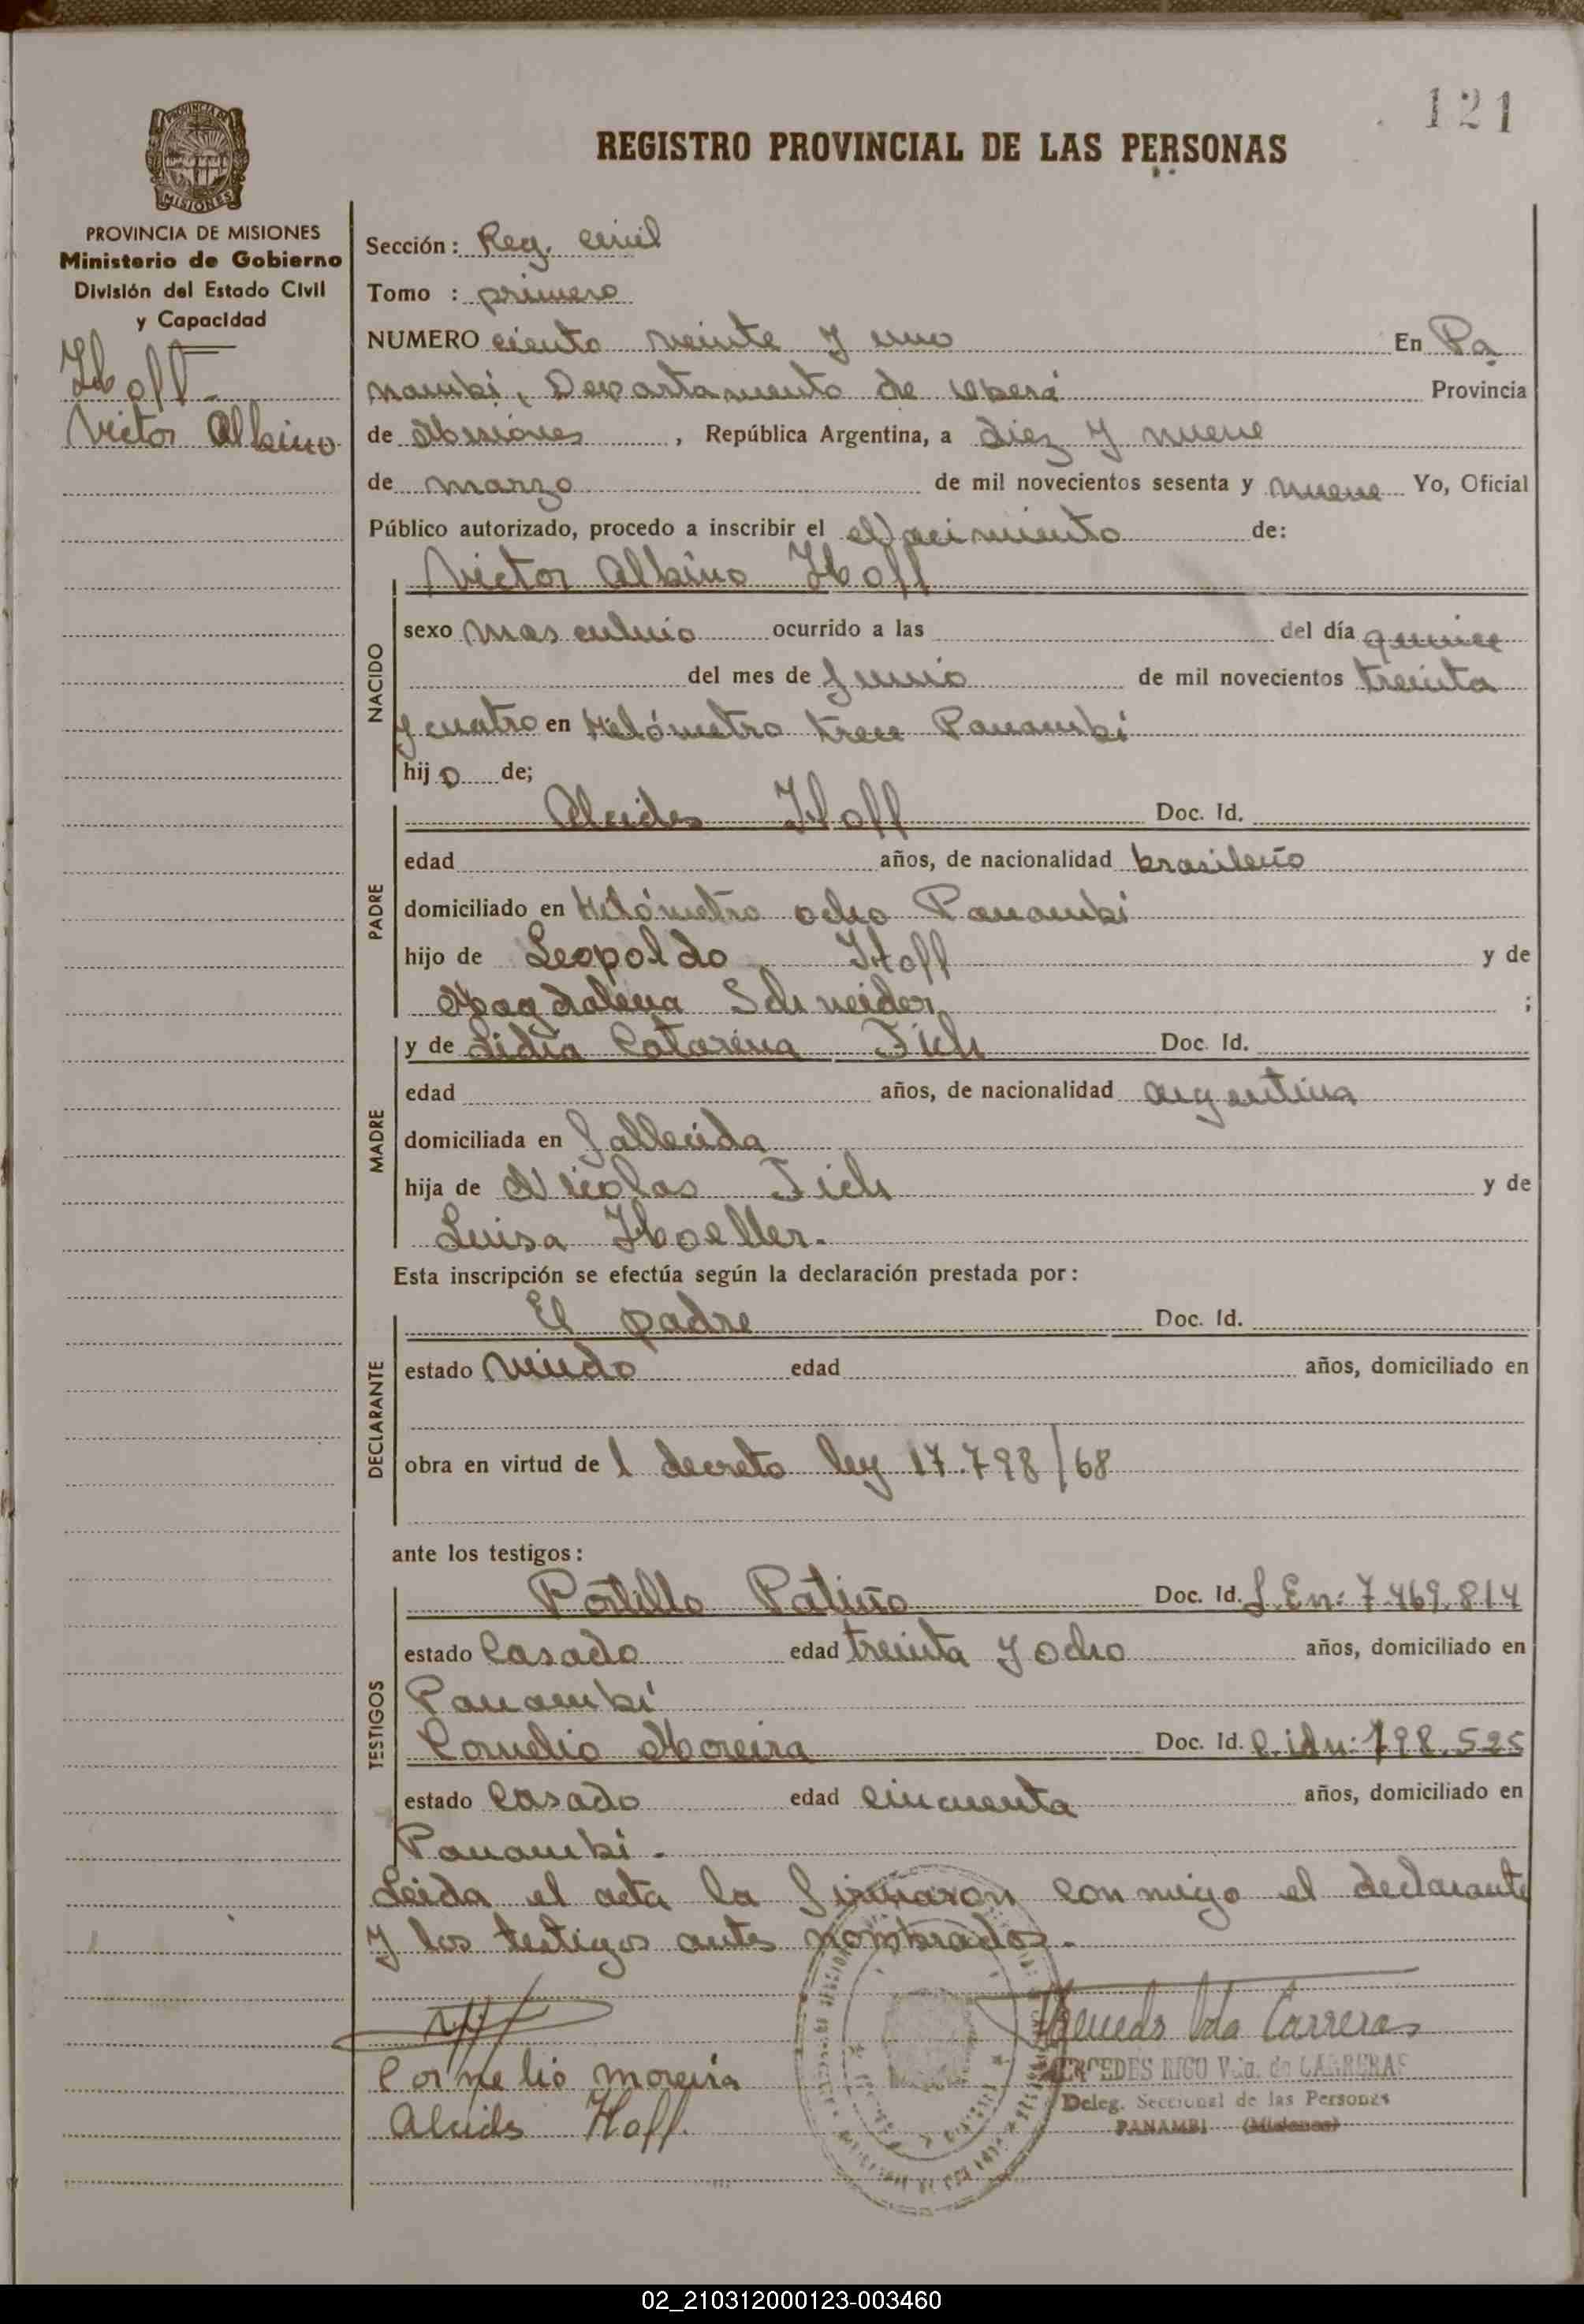 121
REGISTRO PROVINCIAL DE LAS PERSONAS
PROVINCIA DE MISIONES
Ministerio de Gobierno
División del Estado Civil
y Capacidad
Hoff
Victor Albino
Sección: Reg. civil
Tomo : primero
NUMERO ciento veinte y uno En Pa
nambí, Departamento de Oberá Provincia
de Misiones, República Argentina, a diez y nueve
de marzo de mil novecientos sesenta y nueve Yo, Oficial
Público autorizado, procedo a inscribir el Nacimiento de:
Victor Albino Hoff
NACIDO
sexo masculino ocurrido a las del día quince
del mes de Junio de mil novecientos treinta
y cuatro en Kilómetro trece Panambí
hijo de;
PADRE
Alcides Hoff Doc. Id.
edad años, de nacionalidad brasileño
domiciliado en Kilómetro ocho Panambí
hijo de Leopoldo Hoff y de
Magdalena Schneider ;
MADRE
y de Lidia Catarina Fich Doc. Id.
edad años, de nacionalidad argentina
domiciliada en fallecida
hija de Nicolas Fich y de
Luisa Hoeller.
Esta inscripción se efectúa según la declaración prestada por:
DECLARANTE
El padre Doc. Id.
estado viudo edad años, domiciliado en
obra en virtud del decreto ley 17.798/68
ante los testigos:
TESTIGOS
Portillo Patiño Doc. Id. L.En: 7.469.814
estado Casado edad treinta y ocho años, domiciliado en
Panambí
Cornelio Moreira Doc. Id. C.idn: 198.525
estado Casado edad cincuenta años, domiciliado en
Panambí.
Leida el acta la firmaron conmigo el declarante
y los testigos antes nombrados.
Mercedes Vda Carreras
MERCEDES RIGO Vda. de CARRERAS
Deleg. Seccional de las Personas
PANAMBI (Misiones)
Cornelio moreira
Alcides Hoff.
02_210312000123-003460